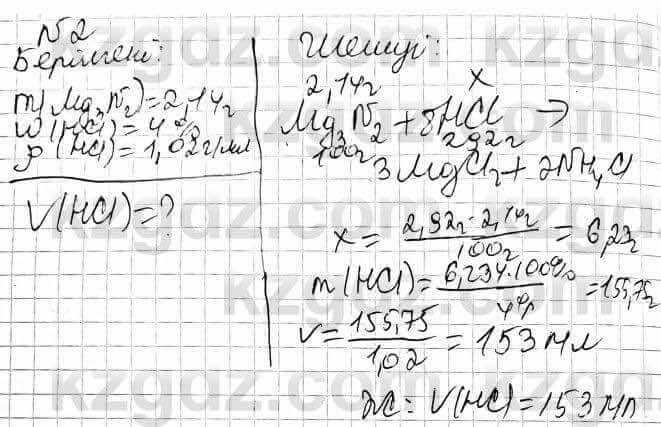 N2
Берілгені:
m(Mg3N2)=2,14г
w(HCl)=4%
ρ(HCl)=1,02г/мл
V(HCl)=?
Шешуі:
2,14г x
Mg3N2+8HCl →
100г 292г
3MgCl2+2NH4Cl
x = 2,92г·2,14г / 100г = 6,23г
m(HCl)= 6,234·100% / 4% =155,75г
V= 155,75 / 1,02 = 153 мл
Ж: V(HCl)=153 мл
kzgdz.com